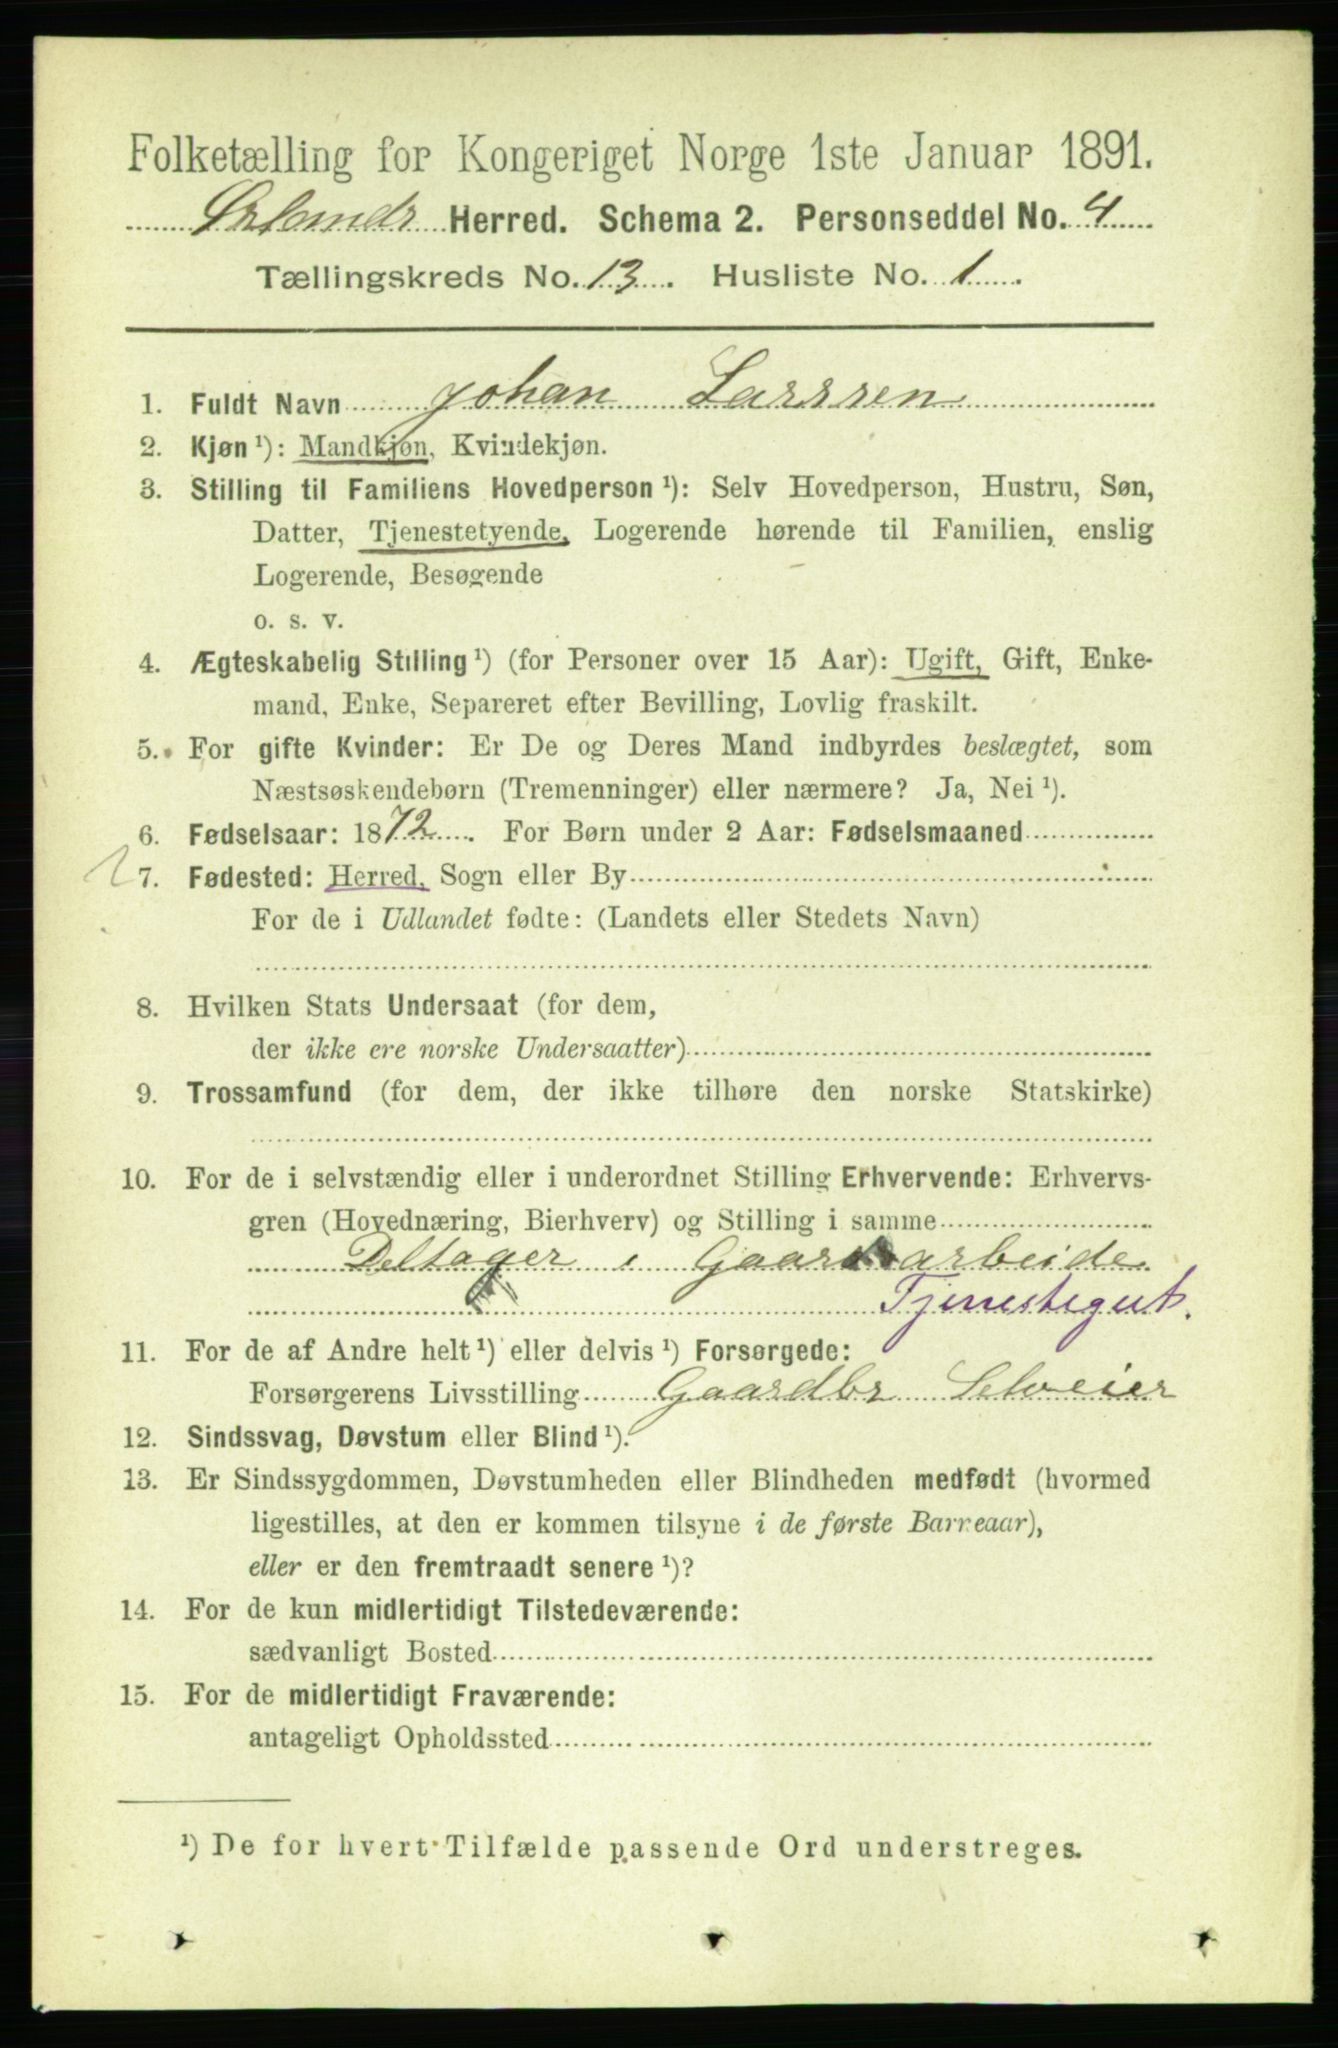 Folketælling for Kongeriget Norge 1ste Januar 1891.
Ørlandr Herred. Schema 2. Personseddel No. 4
Tællingskreds No. 13. Husliste No. 1
1. Fuldt Navn Johan Larssen
2. Kjøn ¹): Mandkjøn, Kvindekjøn.
3. Stilling til Familiens Hovedperson ¹): Selv Hovedperson, Hustru, Søn,
Datter, Tjenestetyende, Logerende hørende til Familien, enslig
Logerende, Besøgende
o. s. v.
4. Ægteskabelig Stilling ¹) (for Personer over 15 Aar): Ugift, Gift, Enke-
mand, Enke, Separeret efter Bevilling, Lovlig fraskilt.
5. For gifte Kvinder: Er De og Deres Mand indbyrdes beslægtet, som
Næstsøskendebørn (Tremenninger) eller nærmere? Ja, Nei ¹).
6. Fødselsaar: 1872. For Børn under 2 Aar: Fødselsmaaned
7. Fødested: Herred, Sogn eller By
For de i Udlandet fødte: (Landets eller Stedets Navn)
8. Hvilken Stats Undersaat (for dem,
der ikke ere norske Undersaatter)
9. Trossamfund (for dem, der ikke tilhøre den norske Statskirke)
10. For de i selvstændig eller i underordnet Stilling Erhvervende: Erhvervs-
gren (Hovednæring, Bierhverv) og Stilling i samme
Deltager i Gaardsarbeide
Tjenestegut.
11. For de af Andre helt ¹) eller delvis ¹) Forsørgede:
Forsørgerens Livsstilling Gaardbr Selveier
12. Sindssvag, Døvstum eller Blind ¹).
13. Er Sindssygdommen, Døvstumheden eller Blindheden medfødt (hvormed
ligestilles, at den er kommen tilsyne i de første Barneaar),
eller er den fremtraadt senere ¹)?
14. For de kun midlertidigt Tilstedeværende:
sædvanligt Bosted
15. For de midlertidigt Fraværende:
antageligt Opholdssted
¹) De for hvert Tilfælde passende Ord understreges.